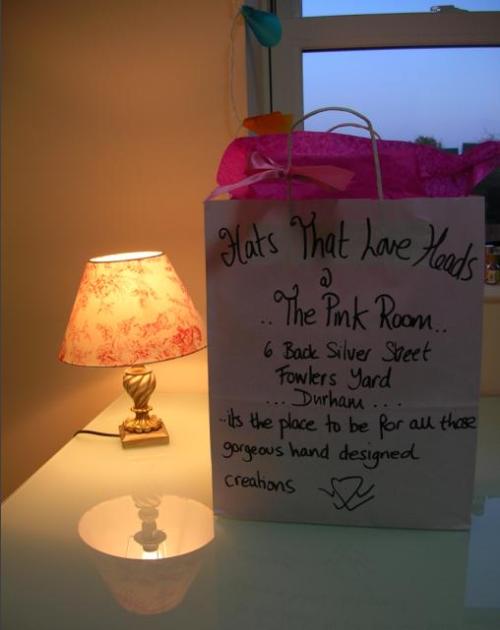 Hats That Love Heads
@
.. The Pink Room..
6 Back Silver Street
Fowlers Yard
... Durham ...
..its the place to be for all those
gorgeous hand designed
creations